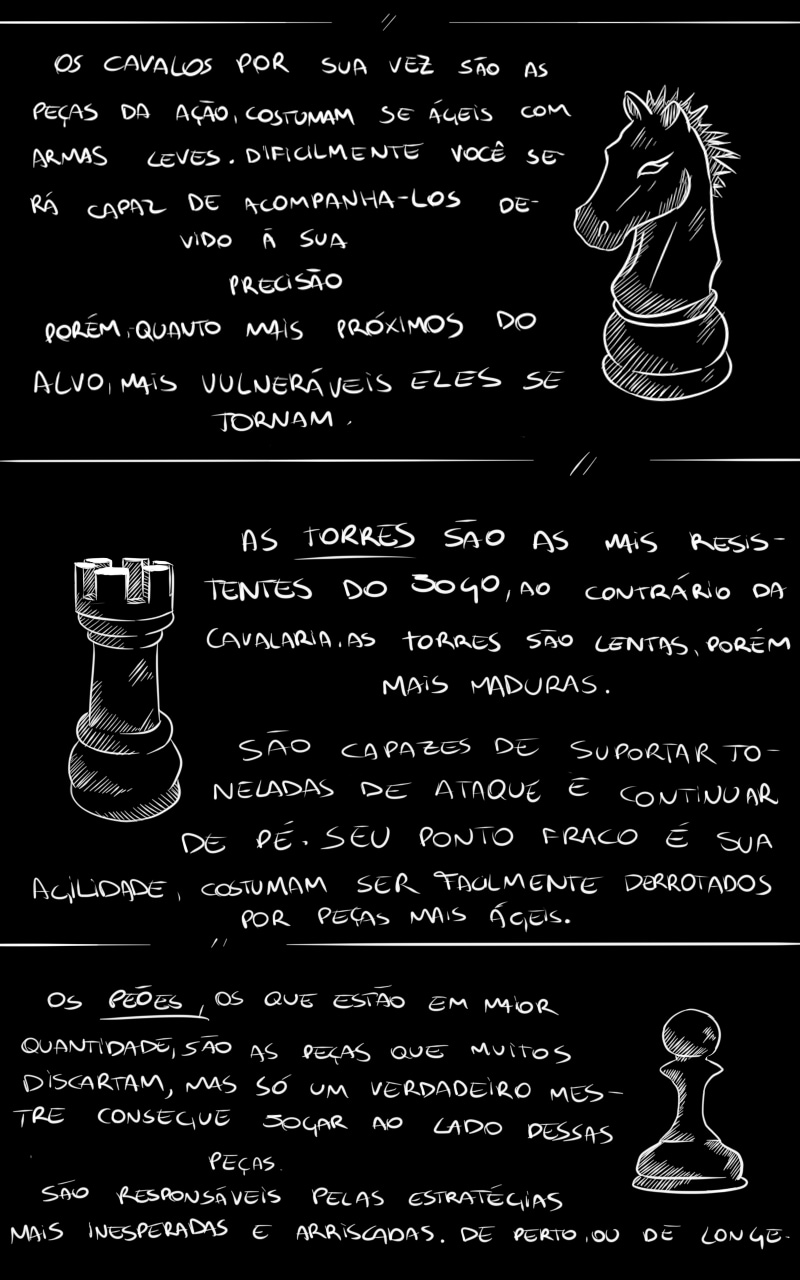 OS CAVALOS POR SUA VEZ SÃO AS
PEÇAS DA AÇÃO, COSTUMAM SE ÁGEIS COM
ARMAS LEVES. DIFICILMENTE VOCÊ SE-
RÁ CAPAZ DE ACOMPANHA-LOS DE-
VIDO Á SUA
PRECISÃO
PORÉM, QUANTO MAIS PRÓXIMOS DO
ALVO, MAIS VULNERÁVEIS ELES SE
TORNAM.
AS TORRES SÃO AS MAIS RESIS-
TENTES DO JOGO, AO CONTRÁRIO DA
CAVALARIA. AS TORRES SÃO LENTAS, PORÉM
MAIS MADURAS.
SÃO CAPAZES DE SUPORTAR TO-
NELADAS DE ATAQUE E CONTINUAR
DE PÉ. SEU PONTO FRACO É SUA
AGILIDADE, COSTUMAM SER FACILMENTE DERROTADOS
POR PEÇAS MAIS ÁGEIS.
OS PEÕES, OS QUE ESTÃO EM MAIOR
QUANTIDADE, SÃO AS PEÇAS QUE MUITOS
DISCARTAM, MAS SÓ UM VERDADEIRO MES-
TRE CONSEGUE JOGAR AO LADO DESSAS
PEÇAS.
SÃO RESPONSÁVEIS PELAS ESTRATÉGIAS
MAIS INESPERADAS E ARRISCADAS. DE PERTO, OU DE LONGE.